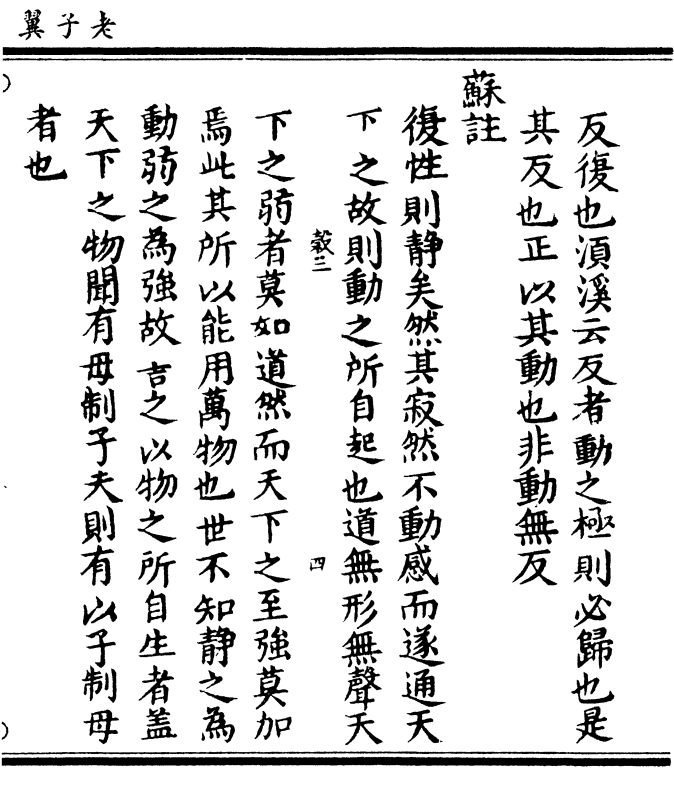 老子翼
反復也湏溪云反者動之極則必歸也是
其反也正以其動也非動無反
蘇註
復性則静矣然其寂然不動感而遂通天
下之故則動之所自起也道無形無聲天
穀三
四
下之弱者莫如道然而天下之至強莫加
焉此其所以能用萬物也世不知静之為
動弱之為強故言之以物之所自生者蓋
天下之物聞有母制子夫則有以子制母
者也